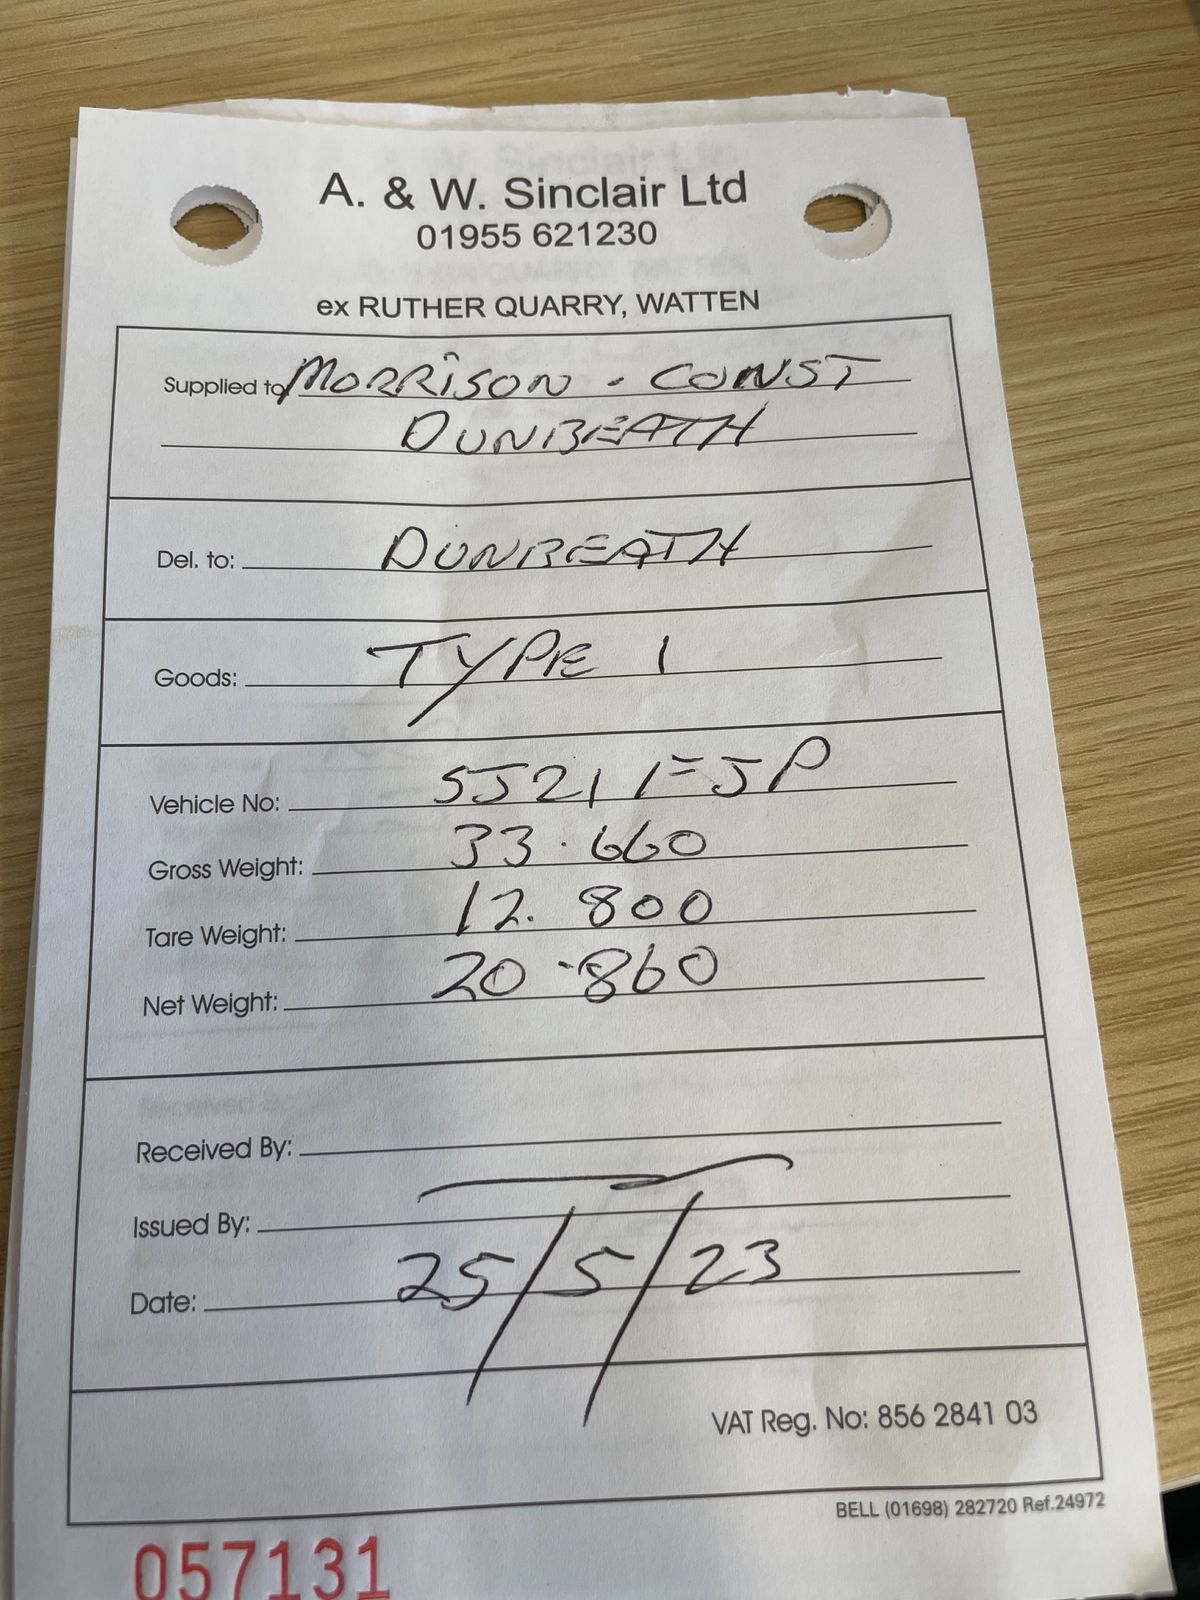 A. & W. Sinclair Ltd
01955 621230
ex RUTHER QUARRY, WATTEN
Supplied to MORRISON . CONST
DUNBEATH
Del. to: DUNBEATH
Goods: TYPE 1
Vehicle No: SJ21 FJP
Gross Weight: 33.660
Tare Weight: 12.800
Net Weight: 20.860
Received By:
Issued By:
Date: 25/5/23
VAT Reg. No: 856 2841 03
BELL (01698) 282720 Ref.24972
057131